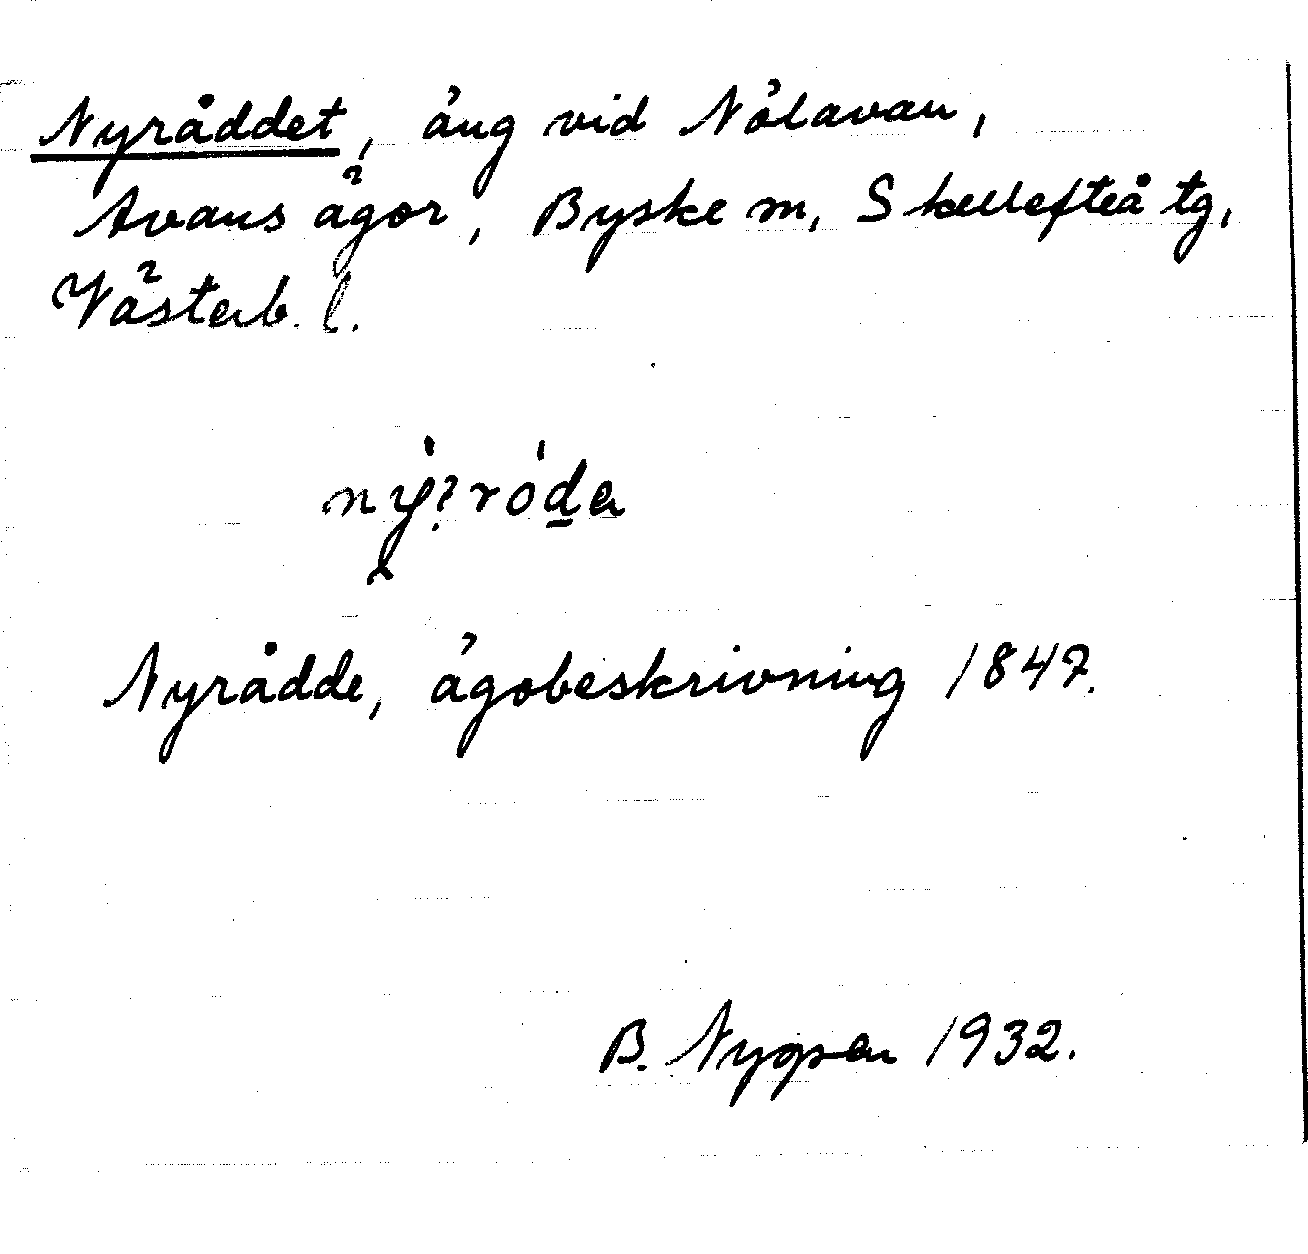 Nyråddet, äng vid Nölavan,
Avans ägor, Byske m, Skellefteå tg,
Västerb. l.
Nyrådde, ägobeskrivning 1847.
B. Nygren 1932.